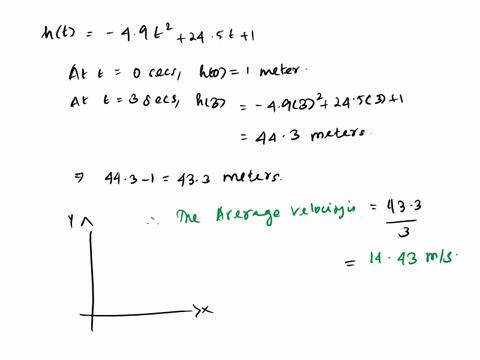 h(t) = - 4.9 t² + 24.5t + 1
At t = 0 secs, h(0) = 1 meter.
At t = 3 secs, h(3) = -4.9(3)² + 24.5(3) + 1
= 44.3 meters.
⇒ 44.3 - 1 = 43.3 meters.
∴ The Average velocity is = 43.3 / 3
= 14.43 m/s.
Y
X